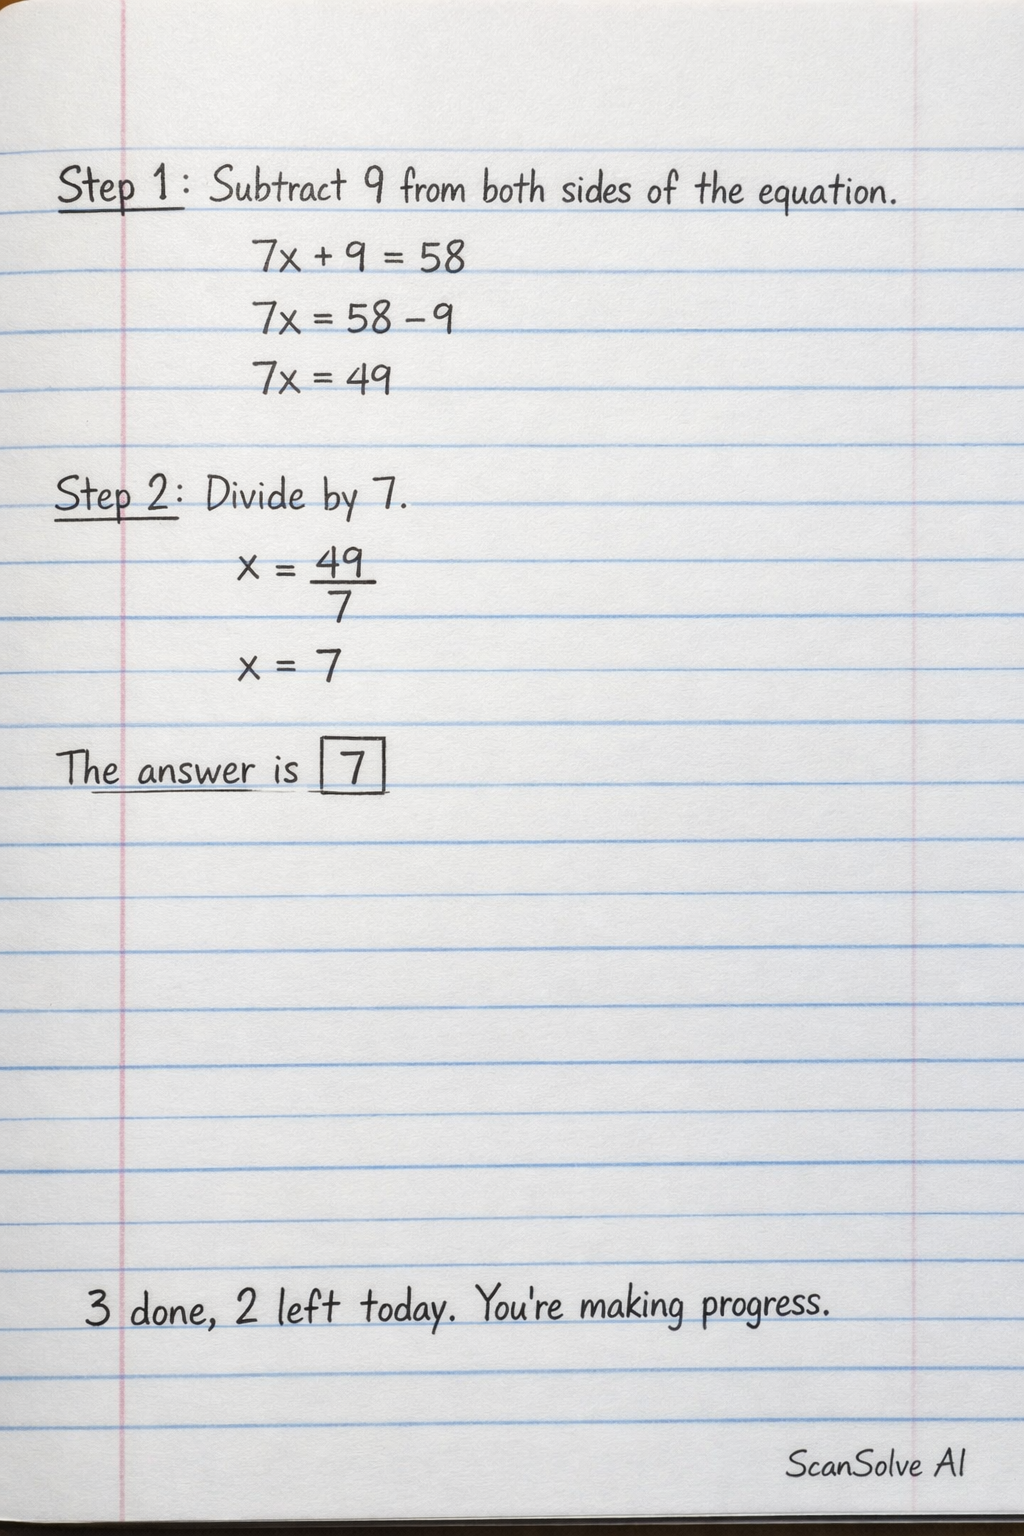 Step 1: Subtract 9 from both sides of the equation.
7x + 9 = 58
7x = 58 - 9
7x = 49
Step 2: Divide by 7.
x = 49/7
x = 7
The answer is 7
3 done, 2 left today. You're making progress.
ScanSolve AI